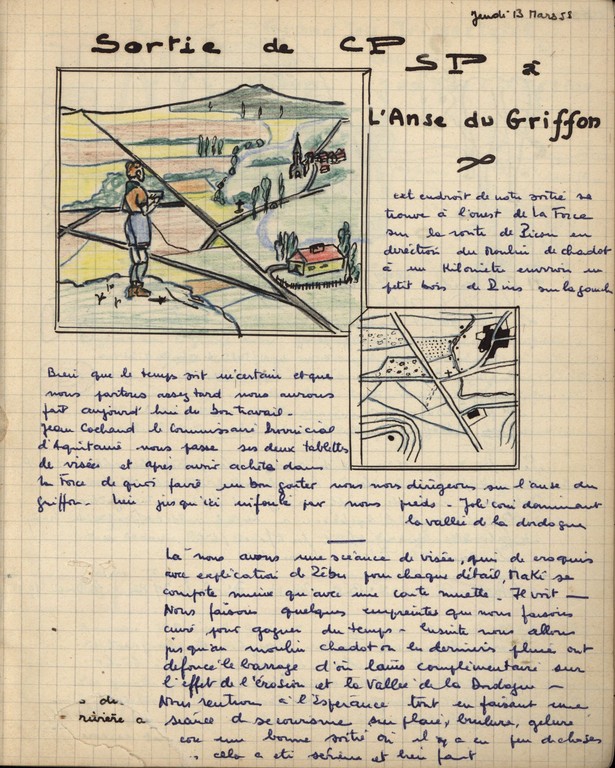 Jeudi 13 Mars 58
Sortie de CP
SP à
L'Anse du Griffon
cet endroit de notre sortie se
trouve à l'ouest de La Force
sur la route de Picon en
deréction du Moulin de chadot
à un Kilomètre environ un
petit bois de Pins sur la gauche
Bien que le temps soit incertain et que
nous partons assez tard nous aurons
fait aujourd'hui du bon travail -
Jean Cochand le Commissaire Provincial
d'Aquitaine nous passe ses deux tablettes
de visée et après avoir acheté dans
La Force de quoi faire un bon goûter nous nous dirigeons sur l'anse du
griffon - lieu jusqu'ici par nous pieds - Joli coin dominant
la vallée de la dordogne
Là nous avons une scéance de visée, puis de croquis
avec explication de Zébu pour chaque détail, Maki se
comporte mieux qu'avec une carte muette - Il voit -
Nous faisons quelques empreintes que nous faisons
cuire pour gagner du temps - Ensuite nous allons
jusqu'au moulin chadot ou les dernières pluies ont
défoncé le barrage d'où laïus complimentaire sur
l'effet de l'érosion et la Vallée de la Dordogne -
Nous rentrons à l'Esperance tout en faisant une
séance de secourisme sur plaie, brulure, gelure
une bonne sortie où il y a eu peu de choses
cela a été sérieux et bien fait
de
rivière a